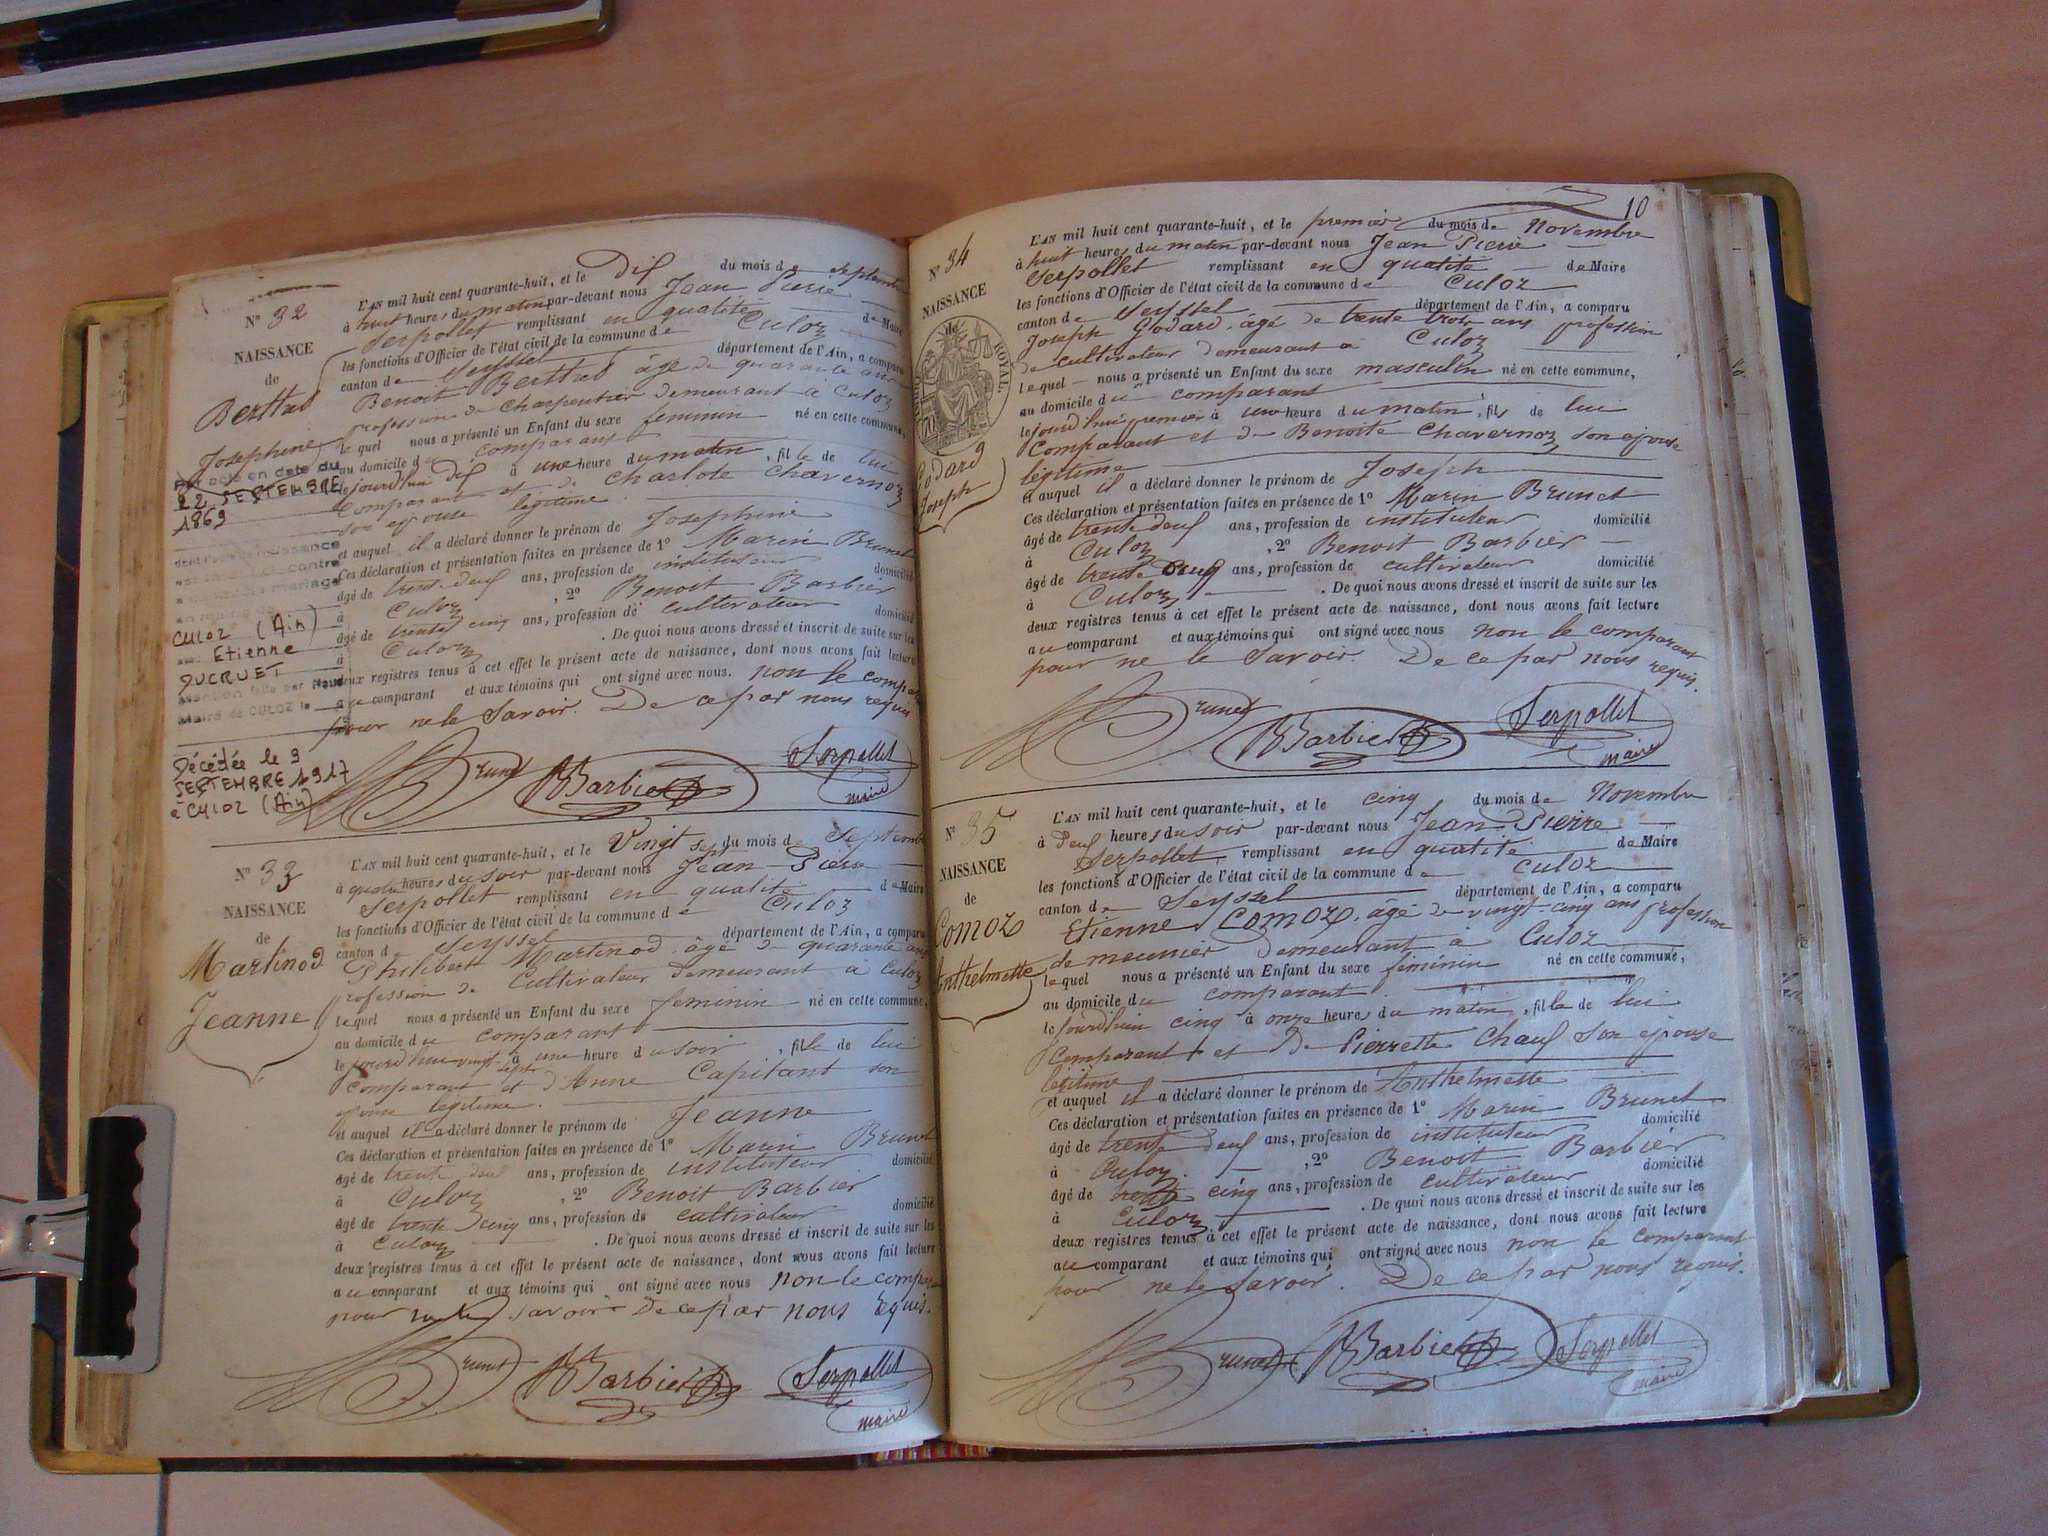 N° 32
NAISSANCE
de
Berthet
Josephine
par acte en date du
22 SEPTEMBRE
1869
CULOZ (Ain)
Etienne
DUCRUET
Maire de CULOZ le
Décédée le 9
SEPTEMBRE 1917
à CULOZ (Ain)
L'AN mil huit cent quarante-huit, et le Dix du mois de Septembre
à huit heures du matin par-devant nous Jean Pierre
Serpollet remplissant en qualité de Maire
les fonctions d'Officier de l'état civil de la commune de Culoz
canton de Seyssel département de l'Ain, a comparu
Benoit Berthet âgé de quarante ans
profession de charpentier demeurant à Culoz
lequel nous a présenté un Enfant du sexe feminin né en cette commune,
au domicile du comparant
le jourdhui Dix à une heure du matin, fille de lui
Comparant et de Charlote Chavernoz
son epouse légitime
et auquel il a déclaré donner le prénom de Josephine
Ces déclaration et présentation faites en présence de 1° Marin Brunet
âgé de trente-deux ans, profession de instituteur domicilié
à Culoz, 2° Benoit Barbier
âgé de trente cinq ans, profession de cultivateur domicilié
à Culoz. De quoi nous avons dressé et inscrit de suite sur les
deux registres tenus à cet effet le présent acte de naissance, dont nous avons fait lecture
au comparant et aux témoins qui ont signé avec nous. non le compar
pour ne le Savoir. De ce par nous requis
Brunet Barbier Serpollet
maire
N° 33
NAISSANCE
de
Martinod
Jeanne
L'AN mil huit cent quarante-huit, et le Vingt sept du mois de Septembre
à quatre heures du soir par-devant nous Jean Pierre
Serpollet remplissant en qualité de Maire
les fonctions d'Officier de l'état civil de la commune de Culoz
canton d Seyssel département de l'Ain, a comparu
Philibert Martinod âgé de quarante ans
profession de Cultivateur demeurant à Culoz
lequel nous a présenté un Enfant du sexe feminin né en cette commune,
au domicile du comparant
le jourdhui vingt sept à une heure du soir, fille de lui
Comparant et d'Anne Capitant son
epouse légitime.
et auquel il a déclaré donner le prénom de Jeanne
Ces déclaration et présentation faites en présence de 1° Marin Brunet
âgé de trente deux ans, profession de instituteur domicilié
à Culoz, 2° Benoit Barbier
âgé de trente cinq ans, profession de cultivateur domicilié
à Culoz. De quoi nous avons dressé et inscrit de suite sur les
deux registres tenus à cet effet le présent acte de naissance, dont nous avons fait lecture
au comparant et aux témoins qui ont signé avec nous non le compar
pour ne le savoir De ce par nous requis.
Brunet Barbier Serpollet
maire
10
N° 34
NAISSANCE
de
TIMBRE ROYAL.
Godard
Joseph
L'AN mil huit cent quarante-huit, et le premier du mois de Novembre
à huit heures du matin par-devant nous Jean Pierre
Serpollet remplissant en qualité de Maire
les fonctions d'Officier de l'état civil de la commune de Culoz
canton de Seyssel département de l'Ain, a comparu
Joseph Godard, âgé de trente trois ans profession
de cultivateur demeurant à Culoz
lequel nous a présenté un Enfant du sexe masculin né en cette commune,
au domicile du comparant
le jourd'hui premier à une heure du matin, fils de lui
Comparant et de Benoite Chavernoz son epouse
légitime
et auquel il a déclaré donner le prénom de Joseph
Ces déclaration et présentation faites en présence de 1° Marin Brunet
âgé de trente deux ans, profession de instituteur domicilié
à Culoz, 2° Benoit Barbier
âgé de trente cinq ans, profession de cultivateur domicilié
à Culoz. De quoi nous avons dressé et inscrit de suite sur les
deux registres tenus à cet effet le présent acte de naissance, dont nous avons fait lecture
au comparant et aux témoins qui ont signé avec nous non le comparant
pour ne le Savoir. De ce par nous requis.
Brunet Barbier Serpollet
maire
N° 35
NAISSANCE
de
Comoz
Anthelmette
L'AN mil huit cent quarante-huit, et le cinq du mois de Novembre
à Deux heures du soir par-devant nous Jean Pierre
Serpollet remplissant en qualité de Maire
les fonctions d'Officier de l'état civil de la commune de Culoz
canton de Seyssel département de l'Ain, a comparu
Etienne Comoz, âgé de vingt-cinq ans profession
de meunier demeurant à Culoz
lequel nous a présenté un Enfant du sexe féminin né en cette commune,
au domicile du comparant.
le jourdhui cinq à onze heures du matin, fille de lui
Comparant et de Pierrette Chaux Son epouse
légitime
et auquel il a déclaré donner le prénom de Anthelmette
Ces déclaration et présentation faites en présence de 1° Marin Brunet
âgé de trente deux ans, profession de instituteur domicilié
à Culoz. , 2° Benoit Barbier
âgé de trente cinq ans, profession de cultivateur domicilié
à Culoz. De quoi nous avons dressé et inscrit de suite sur les
deux registres tenus à cet effet le présent acte de naissance, dont nous avons fait lecture
au comparant et aux témoins qui ont signé avec nous non le comparant
pour ne le Savoir. De ce par nous requis.
Brunet Barbier Serpollet
maire